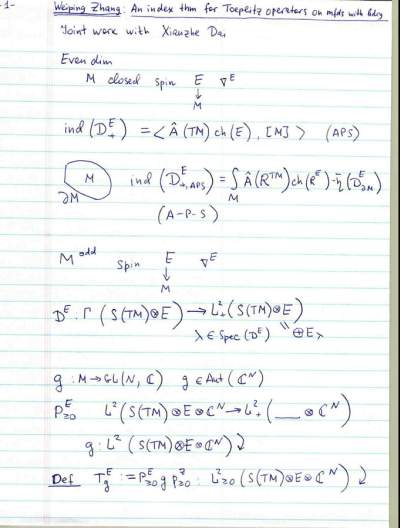 -1-
Weiping Zhang: An index thm for Toeplitz operators on mfds with bdry
Joint work with Xianzhe Dai
Even dim
M closed spin E ∇^E
↓
M
ind (D_+^E) = < Â(TM) ch(E), [M] > (APS)
M ind (D^E_{+,APS}) = ∫_M Â(R^{TM}) ch(R^E) - η̄(D^E_{∂M})
∂M
(A-P-S)
M^{odd} spin E ∇^E
↓
M
D^E : Γ (S(TM)⊗E) → L^2_+ (S(TM)⊗E)
λ ∈ Spec(D^E) " ⊕E_λ
g : M → GL(N, ℂ) g ∈ Aut (ℂ^N)
P^E_{≥0} L^2 (S(TM)⊗E⊗ℂ^N → L^2_+ (___ ⊗ ℂ^N)
g : L^2 (S(TM)⊗E⊗ℂ^N) ⤸
Def T^E_g := P^E_{≥0} g P_{≥0} : L^2_{≥0} (S(TM)⊗E⊗ℂ^N) ⤸